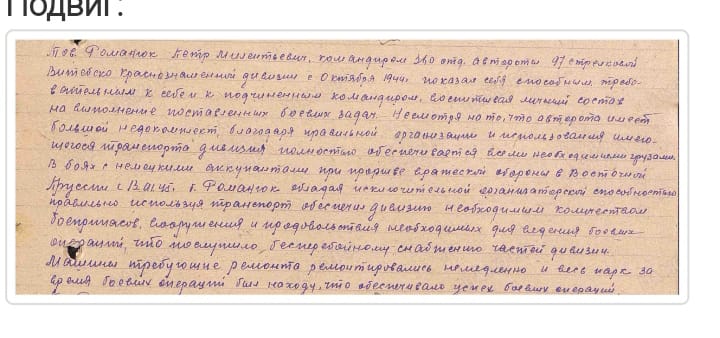 Подвиг:
Тов. Романюк Петр Милентьевич, командиром 360 отд. автороты 97 стрелковой
Витебско Краснознаменной дивизии с Октября 1944г. показал себя способным, требо-
вательным к себе и к подчиненным командиром, воспитывая личный состав
на выполнение поставленных боевых задач. Несмотря на то, что авторота имеет
большой недокомплект, благодаря правильной организации и использования имею-
щегося транспорта дивизия полностью обеспечивается всеми необходимыми грузами.
В боях с немецкими оккупантами при прорыве вражеской обороны в Восточной
Пруссии с 13.01.45 г. Романюк обладая исключительной организаторской способностью
правильно используя транспорт обеспечил дивизию необходимым количеством
боеприпасов, вооружения и продовольствия необходимых для ведения боевых
операций, что послужило бесперебойному снабжению частей дивизии.
Машины требующие ремонта ремонтировались немедленно и весь парк за
время боевых операций был на ходу, что обеспечивало успех боевых операций.